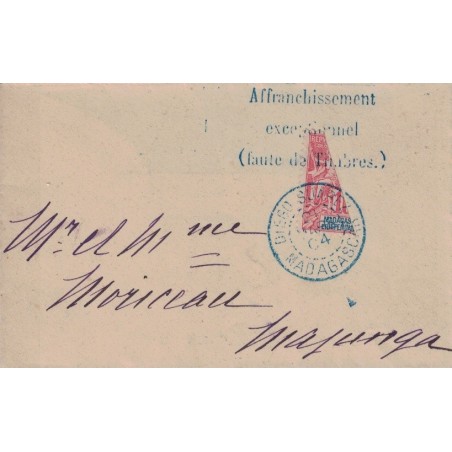 Affranchissement
exceptionnel
(faute de Timbres.)
MADAGASCAR
DIEGO SUAREZ
04
MADAGASCAR
Mr et Mme
Moriceau
Majunga